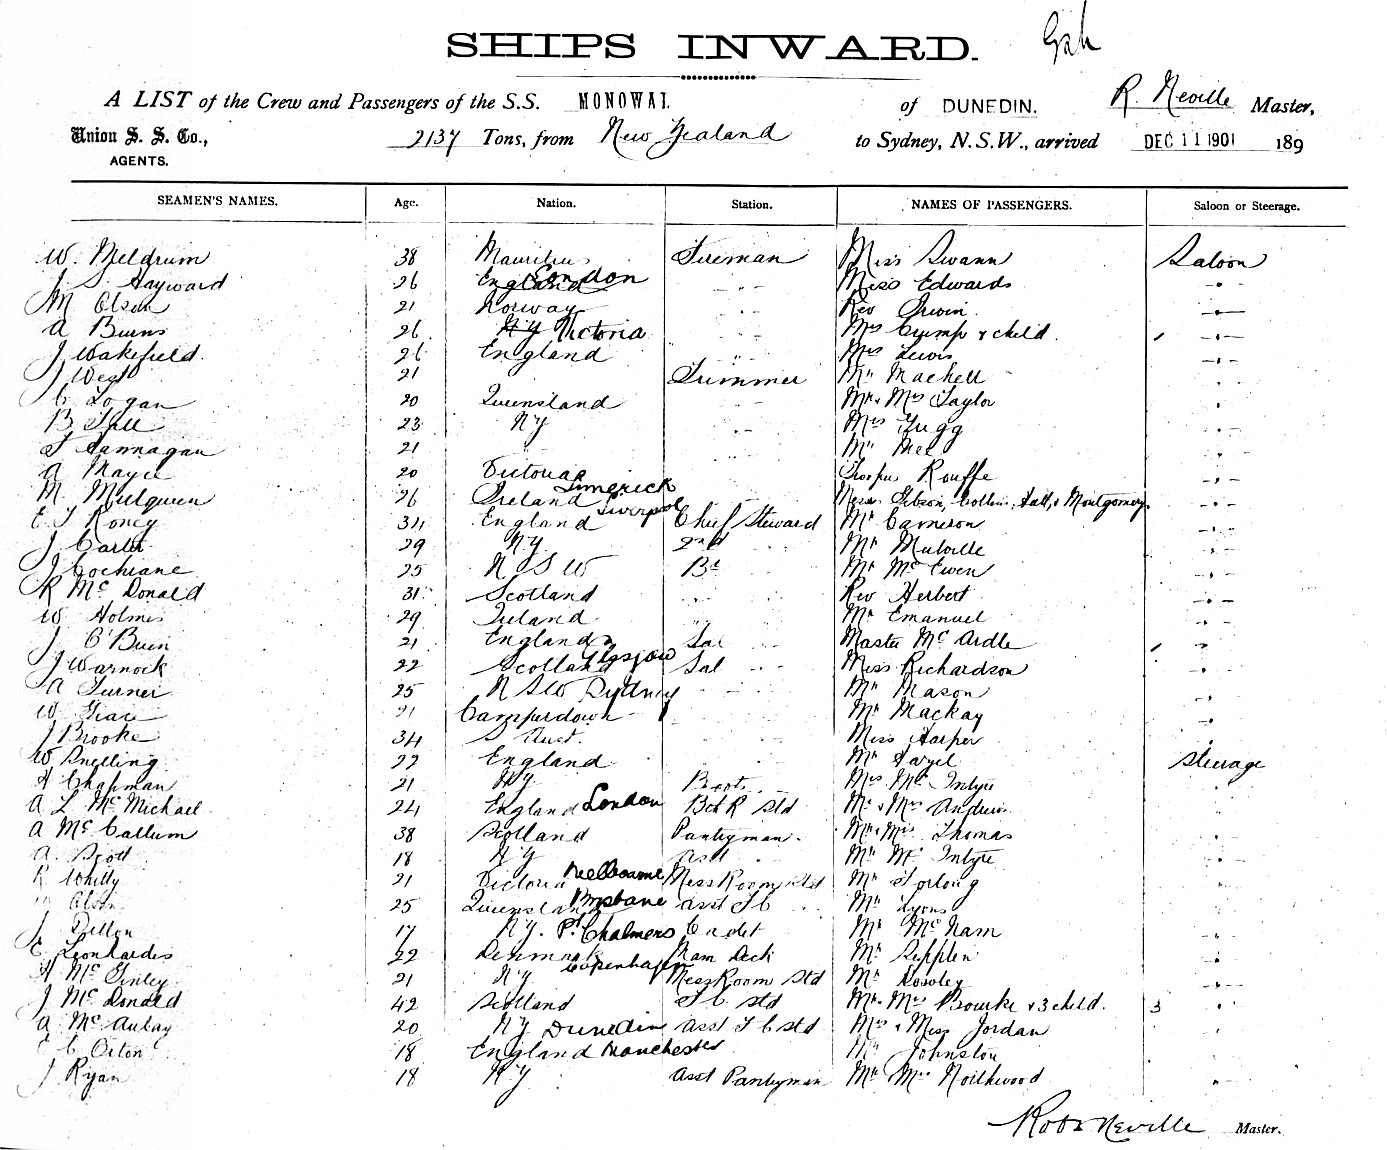 SHIPS INWARD.
A LIST of the Crew and Passengers of the S.S. MONOWAI. of DUNEDIN. R. Neville Master,
Union S. S. Co., AGENTS. 2137 Tons, from New Zealand to Sydney, N.S.W., arrived DEC 11 1901 189
SEAMEN'S NAMES. Age. Nation. Station. NAMES OF PASSENGERS. Saloon or Steerage.
W. Meldrum 38 Mauritius Fireman Miss Swann Saloon
J S. Hayward 26 England London " " Miss Edwards "
M Olsen 21 Norway " " Rev Irwin "
A Burns 26 NZ Victoria " " Mrs Crump & child "
J Wakefield. 26 England " " Mrs Lewis "
J West 21 Trimmer Mr Machell "
C Logan 20 Queensland " " Mr & Mrs Taylor "
B 23 NZ " " Mrs Fugg "
Hannagan 21 " " " Mr "
A Mayce 20 Victoria " " Rouffe "
M Mulqueen 26 Ireland Limerick " " Messrs Gibson, Collins, Hall, & Montgomery "
E J Roney 34 England Liverpool Chief Steward Mr Cameron "
J Carter 29 NZ 2nd " Mr Mulville "
J Cochrane 25 N S W Bk " Mr McEwen "
R McDonald 31 Scotland " " Rev Herbert "
W Holmes 29 Ireland " " Mr Emanuel "
J O'Brien 21 England Sal " Master McArdle "
J Warnock 22 Scotland Glasgow Sal " Miss Richardson "
A Turner 25 N S W Sydney " " Mr Mason "
W Grace 21 Camperdown " " Mr Mackay "
J Brooke 34 S Aust. " " Miss Harper "
W Snelling 22 England " " Mr Steerage
H Chapman 21 NZ Boots " Mrs McIntyre "
A L McMichael 24 England London Bck R Std Mr & Mrs Andrews "
A McCallum 38 Scotland Pantryman. Mr & Mrs Thomas "
A. Scott 18 NZ Asst " Mr McIntyre "
R Whilly 21 Victoria Melbourne Mess Room Std Mr Forlong "
Olsen 25 Queensland Brisbane Asst F C " Mr Lyons "
J Dillon 17 NZ. Pt Chalmers Cadet Mr McNam "
C Leonhardes 22 Denmark Copenhagen Mr Sepplen "
H McGinley 21 NZ Mess Room Std Mr Rowley "
J McDonald 42 Scotland F C Std Mr & Mrs Bourke & 3 child. 3 "
A McAulay 20 NZ Dunedin Asst F C Std Mrs & Miss Jordan "
E C Orton 18 England Manchester Mr Johnston
J Ryan 18 NZ Asst Pantryman Mr & Mrs Northwood "
Robt Neville Master.